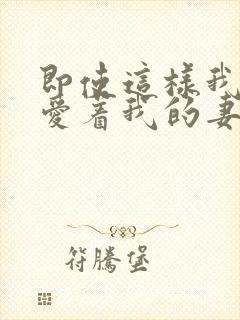 即使這樣我
愛着我的妻
符騰堡